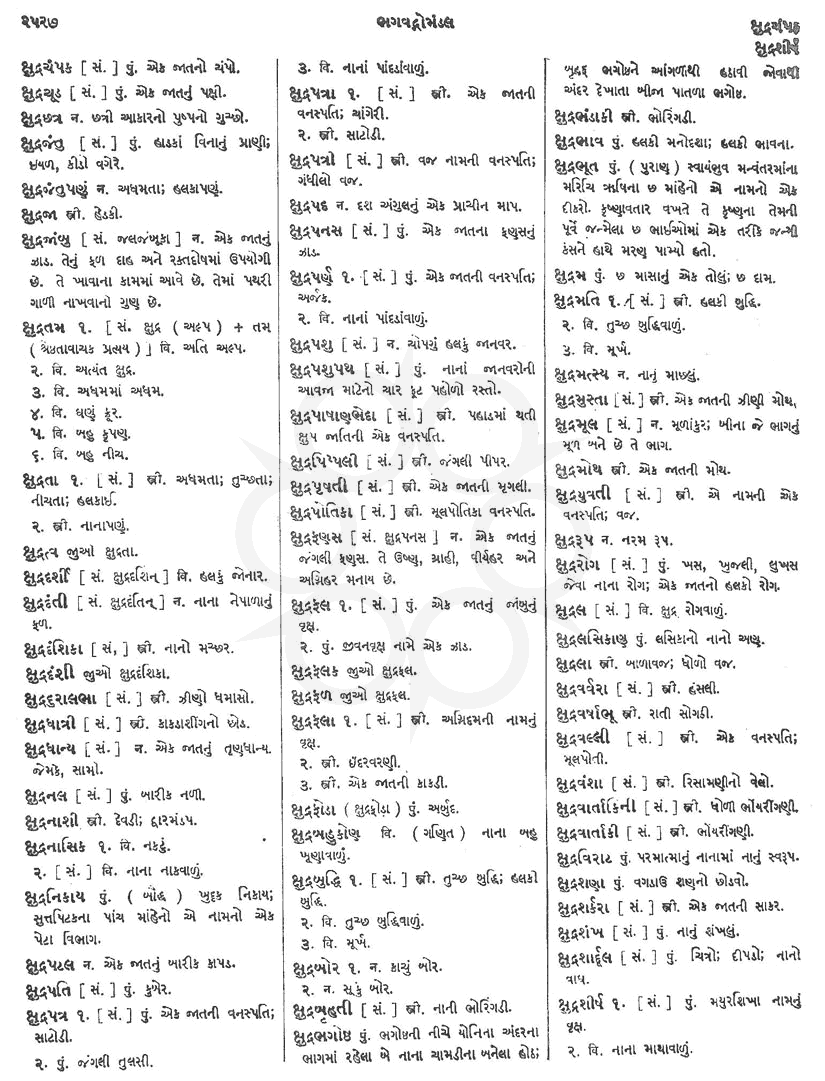 ૨૫૨૭
ભગવદ્ગોમંડલ
ક્ષુદ્રચંપક
ક્ષુદ્રશીર્ષ
ક્ષુદ્રચંપક [ સં. ] પું. એક જાતનો ચંપો.
ક્ષુદ્રચૂડ [ સં. ] પું. એક જાતનું પક્ષી.
ક્ષુદ્રછત્ર ન. છત્રી આકારનો પુષ્પનો ગુચ્છો.
ક્ષુદ્રજંતુ [ સં. ] પું. હાડકાં વિનાનું પ્રાણી;
ઇયળ, કીડો વગેરે.
ક્ષુદ્રજંતુપણું ન. અધમતા; હલકાપણું.
ક્ષુદ્રજા સ્ત્રી. હેડકી.
ક્ષુદ્રજાંબુ [ સં. જલજંબૂકા ] ન. એક જાતનું
ઝાડ. તેનું ફળ દાહ અને રક્તદોષમાં ઉપયોગી
છે. તે ખાવાના કામમાં આવે છે. તેમાં પથરી
ગાળી નાખવાનો ગુણ છે.
ક્ષુદ્રતમ ૧. [ સં. ક્ષુદ્ર ( અલ્પ ) + તમ
( શ્રેષ્ઠતાવાચક પ્રત્યય ) ] વિ. અતિ અલ્પ.
૨. વિ. અત્યંત ક્ષુદ્ર.
૩. વિ. અધમમાં અધમ.
૪. વિ. ઘણું ક્રૂર.
૫. વિ. બહુ કૃપણ.
૬. વિ. બહુ નીચ.
ક્ષુદ્રતા ૧. [ સં. ] સ્ત્રી. અધમતા; તુચ્છતા;
નીચતા; હલકાઈ.
૨. સ્ત્રી. નાનાપણું.
ક્ષુદ્રત્વ જુઓ ક્ષુદ્રતા.
ક્ષુદ્રદર્શી [ સં. ક્ષુદ્રદર્શિન્ ] વિ. હલકું જોનાર.
ક્ષુદ્રદંતી [ સં. ક્ષુદ્રદંતિન્ ] ન. નાના નેપાળાનું
ફળ.
ક્ષુદ્રદંશિકા [ સં, ] સ્ત્રી. નાનો મચ્છર.
ક્ષુદ્રદંશી જુઓ ક્ષુદ્રદંશિકા.
ક્ષુદ્રદુરાલભા [ સં. ] સ્ત્રી. ઝીણો ધમાસો.
ક્ષુદ્રધાત્રી [ સં. ] સ્ત્રી. કાકડાશીંગનો છોડ.
ક્ષુદ્રધાન્ય [ સં. ] ન. એક જાતનું તૃણધાન્ય.
જેમકે, સામો.
ક્ષુદ્રનલ [ સં. ] પું. બારીક નળી.
ક્ષુદ્રનાશી સ્ત્રી. દેવડી; દ્વારમંડપ.
ક્ષુદ્રનાસિક ૧. વિ. નકટું.
૨. [ સં. ] વિ. નાના નાકવાળું.
ક્ષુદ્રનિકાય પું. ( બૌદ્ધ ) ખુદ્દક નિકાય;
સુત્તપિટકના પાંચ માંહેનો એ નામનો એક
પેટા વિભાગ.
ક્ષુદ્રપટલ ન. એક જાતનું બારીક કાપડ.
ક્ષુદ્રપતિ [ સં. ] પું. કુબેર.
ક્ષુદ્રપત્ર ૧. [ સં. ] પું. એક જાતની વનસ્પતિ;
સાટોડી.
૨. પું. જંગલી તુલસી.
૩. વિ. નાનાં પાંદડાંવાળું.
ક્ષુદ્રપત્રા ૧. [ સં. ] સ્ત્રી. એક જાતની
વનસ્પતિ; ચાંગેરી.
૨. સ્ત્રી. સાટોડી.
ક્ષુદ્રપત્રી [ સં. ] સ્ત્રી. વજ નામની વનસ્પતિ;
ગંધીલો વજ.
ક્ષુદ્રપદ ન. દશ અંગુલનું એક પ્રાચીન માપ.
ક્ષુદ્રપનસ [ સં. ] પું. એક જાતના ફણસનું
ઝાડ.
ક્ષુદ્રપર્ણ ૧. [ સં. ] પું. એક જાતની વનસ્પતિ;
અર્જક.
૨. વિ. નાનાં પાંદડાંવાળું.
ક્ષુદ્રપશુ [ સં. ] ન. ચોપગું હલકું જાનવર.
ક્ષુદ્રપશુપથ [ સં. ] પું. નાનાં જાનવરોની
આવજા માટેનો ચાર ફૂટ પહોળો રસ્તો.
ક્ષુદ્રપાષાણભેદા [ સં. ] સ્ત્રી. પહાડમાં થતી
ક્ષુપ જાતિની એક વનસ્પતિ.
ક્ષુદ્રપિપ્પલી [ સં. ] સ્ત્રી. જંગલી પીપર.
ક્ષુદ્રપૃષતી [ સં. ] સ્ત્રી. એક જાતની મૃગલી.
ક્ષુદ્રપોતિકા [ સં. ] સ્ત્રી. મૂલપોતિકા વનસ્પતિ.
ક્ષુદ્રફણસ [ સં. ક્ષુદ્રપનસ ] ન. એક જાતનું
જંગલી ફણસ. તે ઉષ્ણ, ગ્રાહી, વીર્યહર અને
અગ્નિહર મનાય છે.
ક્ષુદ્રફલ ૧. [ સં. ] પું. એક જાતનું જાંબુનું
વૃક્ષ.
૨. પું. જીવનવૃક્ષ નામે એક ઝાડ.
ક્ષુદ્રફલક જુઓ ક્ષુદ્રફલ.
ક્ષુદ્રફળ જુઓ ક્ષુદ્રફલ.
ક્ષુદ્રફલા ૧. [ સં. ] સ્ત્રી. અગ્નિદમની નામનું
વૃક્ષ.
૨. સ્ત્રી. ઇંદરવરણી.
૩. સ્ત્રી. એક જાતની કાકડી.
ક્ષુદ્રફોડા ( ક્ષુદ્રફોડા ) પું. અર્બુદ.
ક્ષુદ્રબહુકોણ વિ. ( ગણિત ) નાના બહુ
ખૂણાવાળું.
ક્ષુદ્રબુદ્ધિ ૧. [ સં. ] સ્ત્રી. તુચ્છ બુદ્ધિ; હલકી
બુદ્ધિ.
૨. વિ. તુચ્છ બુદ્ધિવાળું.
૩. વિ. મૂર્ખ.
ક્ષુદ્રબોર ૧. ન. કાચું બોર.
૨. ન. સૂકું બોર.
ક્ષુદ્રબૃહતી [ સં. ] સ્ત્રી. નાની ભોરિંગડી.
ક્ષુદ્રભગોષ્ઠ પું. ભગોષ્ઠની નીચે યોનિના અંદરના
ભાગમાં રહેલા બે નાના ચામડીના બનેલા હોઠ;
બૃહદ્ ભગોષ્ઠને આંગળાથી હઠાવી જોવાથી
અંદર દેખાતા બીજા પાતળા ભગોષ્ઠ.
ક્ષુદ્રભંડાકી સ્ત્રી. ભોરિંગડી.
ક્ષુદ્રભાવ પું. હલકી મનોદશા; હલકી ભાવના.
ક્ષુદ્રભૂત પું. ( પુરાણ ) સ્વાયંભુવ મન્વંતરમાંના
મરિચિ ઋષિના છ માંહેનો એ નામનો એક
દીકરો. કૃષ્ણાવતાર વખતે તે કૃષ્ણના તેમની
પૂર્વે જન્મેલા છ ભાઈઓમાં એક તરીકે જન્મી
કંસને હાથે મરણ પામ્યો હતો.
ક્ષુદ્રમ પું. છ માસાનું એક તોલું; છ દામ.
ક્ષુદ્રમતિ ૧. [ સં. ] સ્ત્રી. હલકી બુદ્ધિ.
૨. વિ. તુચ્છ બુદ્ધિવાળું.
૩. વિ. મૂર્ખ.
ક્ષુદ્રમત્સ્ય ન. નાનું માછલું.
ક્ષુદ્રમુસ્તા [ સં. ] સ્ત્રી. એક જાતની ઝીણી મોથ.
ક્ષુદ્રમૂલ [ સં. ] ન. મૂળાંકુર; બીના જે ભાગનું
મૂળ બને છે તે ભાગ.
ક્ષુદ્રમોથ સ્ત્રી. એક જાતની મોથ.
ક્ષુદ્રયુવતી [ સં. ] સ્ત્રી. એ નામની એક
વનસ્પતિ; વજ.
ક્ષુદ્રરૂપ ન. નરમ રૂપ.
ક્ષુદ્રરોગ [ સં. ] પું. ખસ, ખુજલી, લુખસ
જેવા નાના રોગ; એક જાતનો હલકો રોગ.
ક્ષુદ્રલ [ સં. ] વિ. ક્ષુદ્ર રોગવાળું.
ક્ષુદ્રલસિકાણુ પું. લસિકાનો નાનો અણુ.
ક્ષુદ્રલા સ્ત્રી. બાળાવજ; ધોળો વજ.
ક્ષુદ્રવર્વરા [ સં. ] સ્ત્રી. હંસલી.
ક્ષુદ્રવર્ષાભૂ સ્ત્રી. રાતી સોગડી.
ક્ષુદ્રવલ્લી [ સં. ] સ્ત્રી. એક વનસ્પતિ;
મૂલપોતી.
ક્ષુદ્રવંશા [ સં. ] સ્ત્રી. રિસામણીનો વેલો.
ક્ષુદ્રવાર્તાકિની [ સં. ] સ્ત્રી. ધોળી ભોંયરીંગણી.
ક્ષુદ્રવાર્તાકી [ સં. ] સ્ત્રી. ભોંયરીંગણી.
ક્ષુદ્રવિરાટ પું. પરમાત્માનું નાનામાં નાનું સ્વરૂપ.
ક્ષુદ્રશણા પું. વગડાઉ શણનો છોડવો.
ક્ષુદ્રશર્કરા [ સં. ] સ્ત્રી. એક જાતની સાકર.
ક્ષુદ્રશંખ [ સં. ] પું. નાનું શંખલું.
ક્ષુદ્રશાર્દૂલ [ સં. ] પું. ચિત્રો; દીપડો; નાનો
વાઘ.
ક્ષુદ્રશીર્ષ ૧. [ સં. ] પું. મયુરશિખા નામનું
વૃક્ષ.
૨. વિ. નાના માથાવાળું.